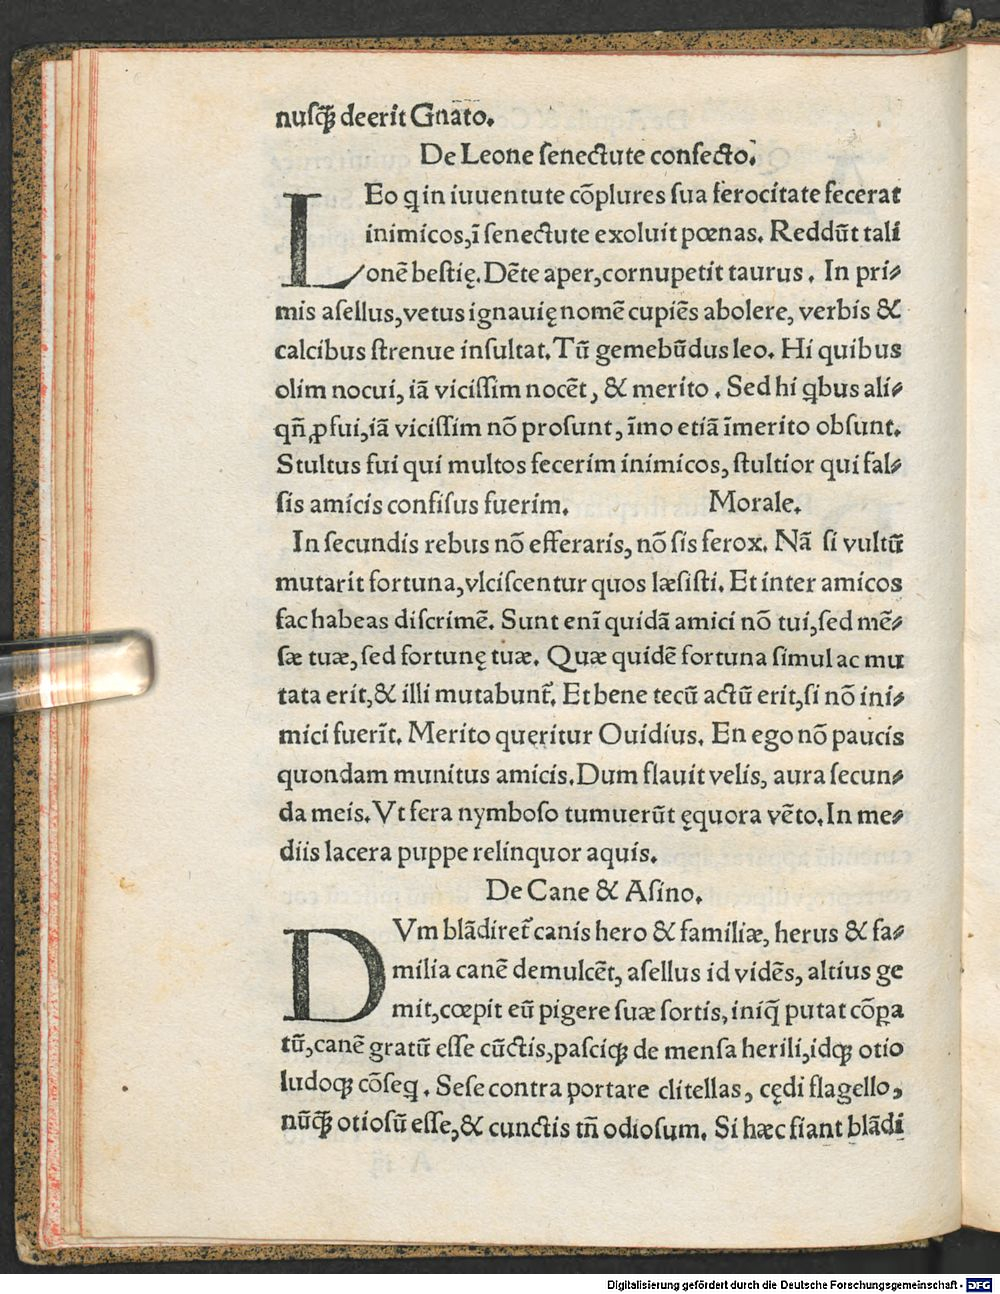 nusq̃ȝ deerit Gnato.
De Leone senectute confecto.
LEo q in iuuentute cõplures sua ferocitate fecerat
inimicos,ĩ senectute exoluit pœnas. Reddũt tali
onẽ bestię. Dẽte aper,cornupetit taurus. In pri⸗
mis asellus,vetus ignauię nomẽ cupiẽs abolere, verbis &
calcibus strenue insultat. Tũ gemebũdus leo. Hi quibus
olim nocui, iã vicissim nocẽt, & merito. Sed hi qbus ali⸗
qñ ꝓfui,iã vicissim nõ prosunt, ĩmo etiã ĩmerito obsunt.
Stultus fui qui multos fecerim inimicos, stultior qui fal⸗
sis amicis confisus fuerim. Morale.
In secundis rebus nõ efferaris, nõ sis ferox. Nã si vultũ
mutarit fortuna,vlciscentur quos læsisti. Et inter amicos
fac habeas discrimẽ. Sunt enĩ quidã amici nõ tui,sed mẽ⸗
sæ tuæ, sed fortunę tuæ. Quæ quidẽ fortuna simul ac mu
tata erit,& illi mutabunt̃. Et bene tecũ actũ erit,si nõ ini⸗
mici fuerĩt. Merito quęritur Ouidius. En ego nõ paucis
quondam munitus amicis. Dum flauit velis, aura secun⸗
da meis. Vt fera nymboso tumuerũt ęquora vẽto. In me⸗
diis lacera puppe relinquor aquis.
De Cane & Asino.
DVm blãdiret̃ canis hero & familiæ, herus & fa⸗
milia canẽ demulcẽt, asellus id vidẽs, altius ge
mit,cœpit eũ pigere suæ sortis, iniq̃ putat cõpa
tũ,canẽ gratũ esse cũctis,pasciqȝ de mensa herili,idqȝ otio
ludoqȝ cõseq. Sese contra portare clitellas, cędi flagello,
nũq̃ȝ otiosũ esse,& cunctis tñ odiosum. Si hæc fiant blãdi
Digitalisierung gefördert durch die Deutsche Forschungsgemeinschaft - DFG